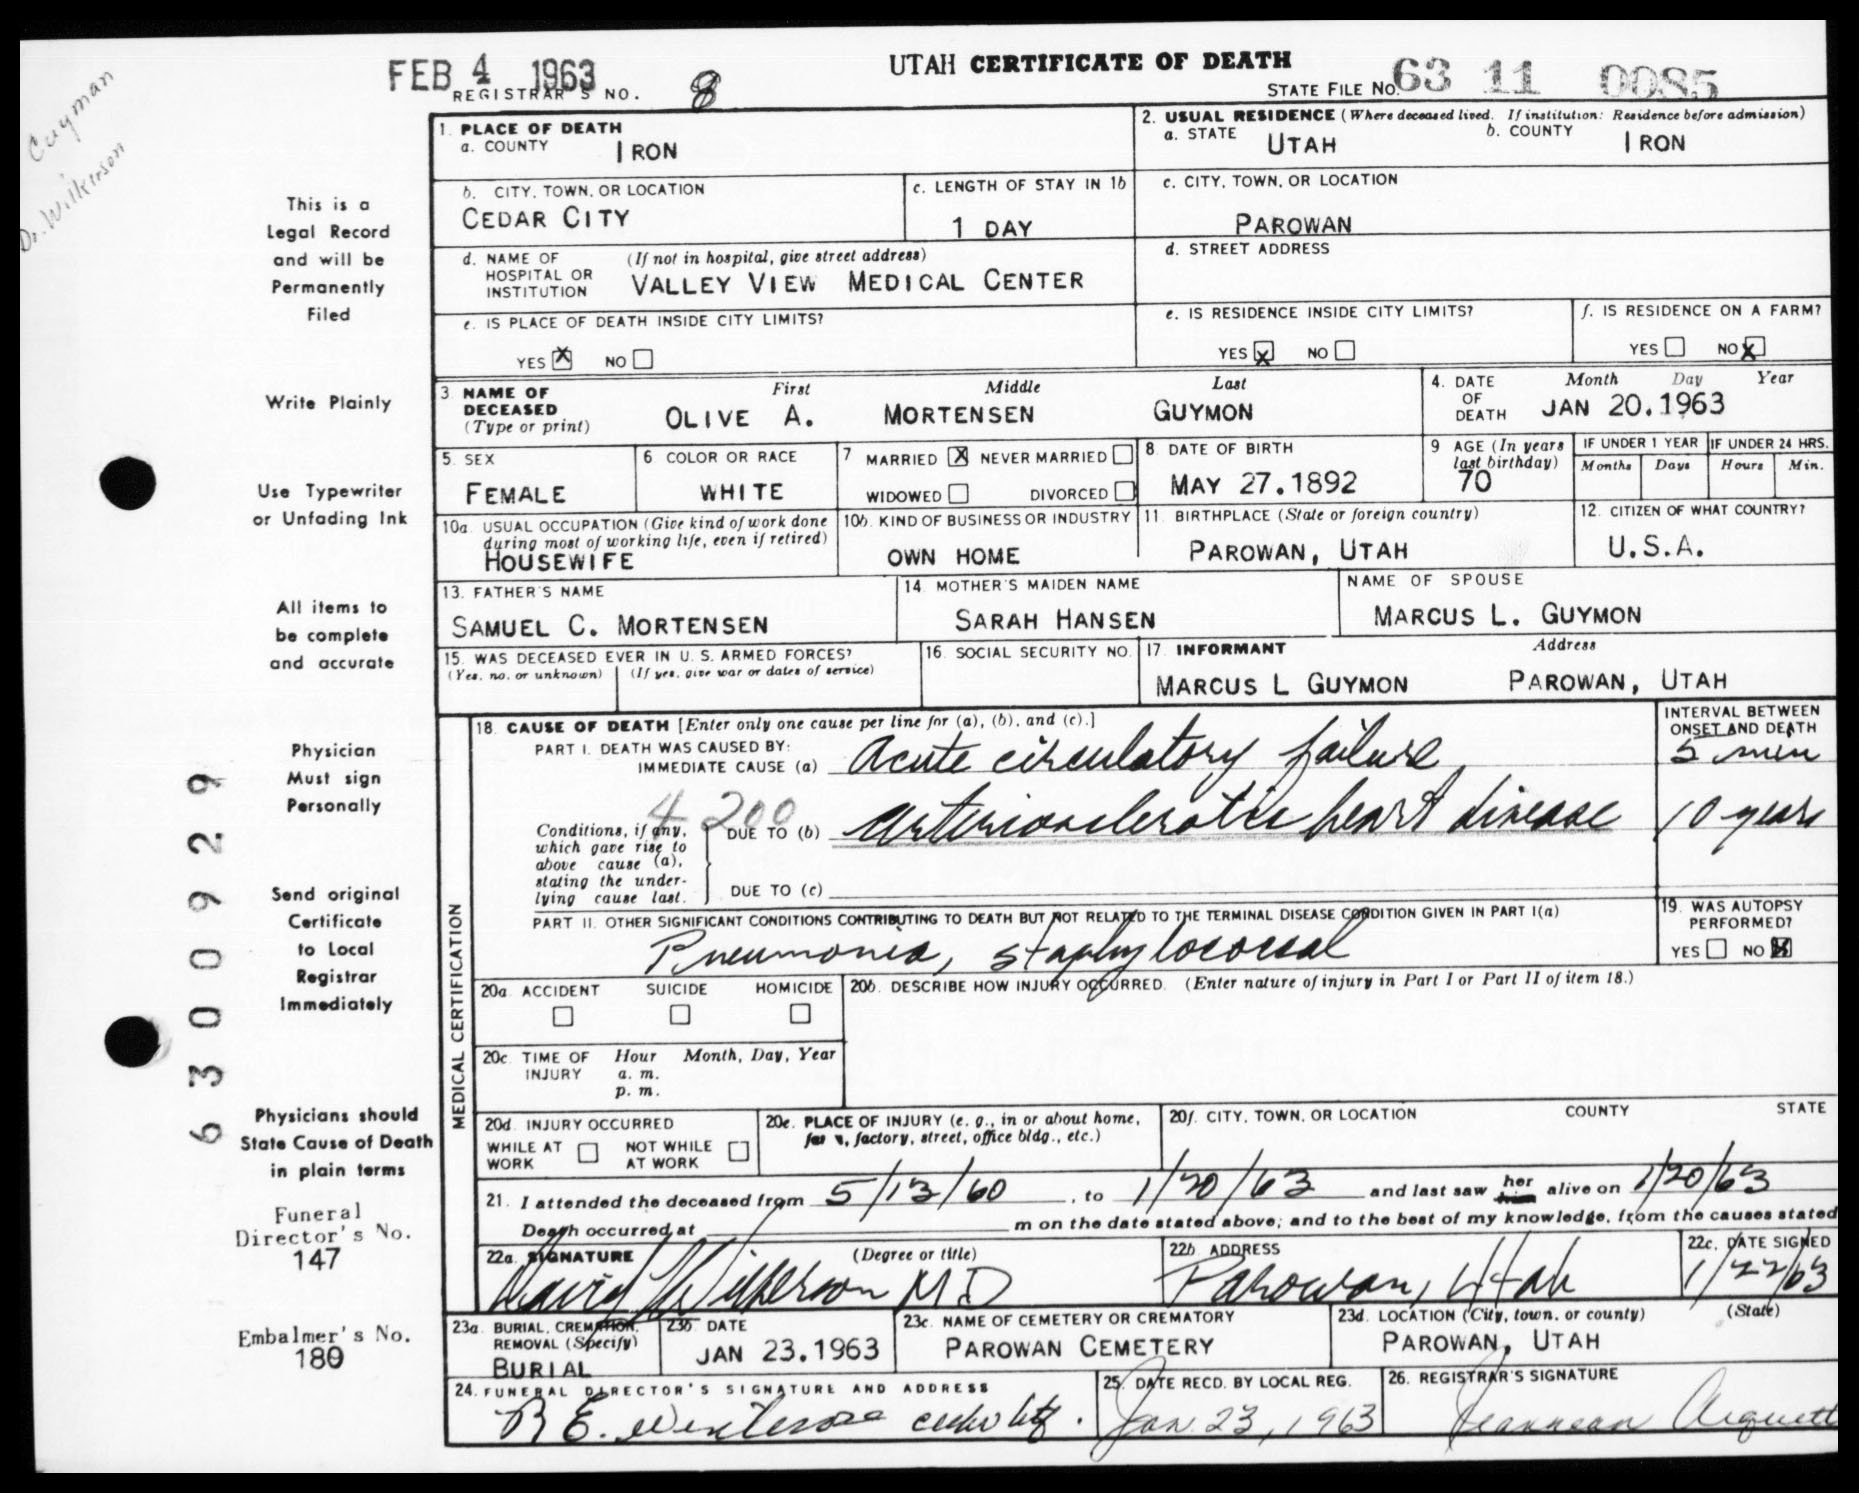 FEB 4 1963
REGISTRAR'S NO. 8
UTAH CERTIFICATE OF DEATH
STATE FILE NO. 63 11 0085
Guyman
Dr. Wilkerson
This is a
Legal Record
and will be
Permanently
Filed
Write Plainly
Use Typewriter
or Unfading Ink
All items to
be complete
and accurate
Physician
Must sign
Personally
Send original
Certificate
to Local
Registrar
Immediately
Physicians should
State Cause of Death
in plain terms
Funeral
Director's No.
147
Embalmer's No.
180
6300929
1. PLACE OF DEATH
a. COUNTY IRON
2. USUAL RESIDENCE (Where deceased lived. If institution: Residence before admission)
a. STATE UTAH b. COUNTY IRON
b. CITY, TOWN, OR LOCATION
CEDAR CITY
c. LENGTH OF STAY IN 1b
1 DAY
c. CITY, TOWN, OR LOCATION
PAROWAN
d. NAME OF HOSPITAL OR INSTITUTION (If not in hospital, give street address)
VALLEY VIEW MEDICAL CENTER
d. STREET ADDRESS
e. IS PLACE OF DEATH INSIDE CITY LIMITS?
YES X NO
e. IS RESIDENCE INSIDE CITY LIMITS?
YES X NO
f. IS RESIDENCE ON A FARM?
YES NO X
3. NAME OF DECEASED (Type or print)
First Middle Last
OLIVE A. MORTENSEN GUYMON
4. DATE OF DEATH Month Day Year
JAN 20.1963
5. SEX
FEMALE
6 COLOR OR RACE
WHITE
7 MARRIED X NEVER MARRIED
WIDOWED DIVORCED
8. DATE OF BIRTH
MAY 27.1892
9 AGE (In years last birthday)
70
IF UNDER 1 YEAR
Months Days
IF UNDER 24 HRS.
Hours Min.
10a. USUAL OCCUPATION (Give kind of work done during most of working life, even if retired)
HOUSEWIFE
10b. KIND OF BUSINESS OR INDUSTRY
OWN HOME
11. BIRTHPLACE (State or foreign country)
PAROWAN, UTAH
12. CITIZEN OF WHAT COUNTRY?
U.S.A.
13. FATHER'S NAME
SAMUEL C. MORTENSEN
14. MOTHER'S MAIDEN NAME
SARAH HANSEN
NAME OF SPOUSE
MARCUS L. GUYMON
15. WAS DECEASED EVER IN U. S. ARMED FORCES?
(Yes, no, or unknown) (If yes, give war or dates of service)
16. SOCIAL SECURITY NO.
17. INFORMANT Address
MARCUS L GUYMON PAROWAN, UTAH
MEDICAL CERTIFICATION
18. CAUSE OF DEATH [Enter only one cause per line for (a), (b), and (c).]
PART I. DEATH WAS CAUSED BY:
IMMEDIATE CAUSE (a) Acute circulatory failure
INTERVAL BETWEEN ONSET AND DEATH
5 min
4 200
Conditions, if any, which gave rise to above cause (a), stating the underlying cause last.
DUE TO (b) arteriosclerotic heart disease 10 years
DUE TO (c)
PART II. OTHER SIGNIFICANT CONDITIONS CONTRIBUTING TO DEATH BUT NOT RELATED TO THE TERMINAL DISEASE CONDITION GIVEN IN PART I(a)
Pneumonia, staphylococcal
19. WAS AUTOPSY PERFORMED?
YES NO X
20a. ACCIDENT SUICIDE HOMICIDE
20b. DESCRIBE HOW INJURY OCCURRED. (Enter nature of injury in Part I or Part II of item 18.)
20c. TIME OF INJURY Hour Month, Day, Year
a. m.
p. m.
20d. INJURY OCCURRED
WHILE AT WORK NOT WHILE AT WORK
20e. PLACE OF INJURY (e. g., in or about home, farm, factory, street, office bldg., etc.)
20f. CITY, TOWN, OR LOCATION COUNTY STATE
21. I attended the deceased from 5/13/60, to 1/20/63 and last saw her him alive on 1/20/63
Death occurred at m on the date stated above; and to the best of my knowledge, from the causes stated
22a. SIGNATURE (Degree or title)
David Wilkerson MD
22b. ADDRESS
Parowan, Utah
22c. DATE SIGNED
1/22/63
23a. BURIAL, CREMATION, REMOVAL (Specify)
BURIAL
23b. DATE
JAN 23.1963
23c. NAME OF CEMETERY OR CREMATORY
PAROWAN CEMETERY
23d. LOCATION (City, town, or county) (State)
PAROWAN, UTAH
24. FUNERAL DIRECTOR'S SIGNATURE AND ADDRESS
R E.
25. DATE RECD. BY LOCAL REG.
Jan. 23, 1963
26. REGISTRAR'S SIGNATURE